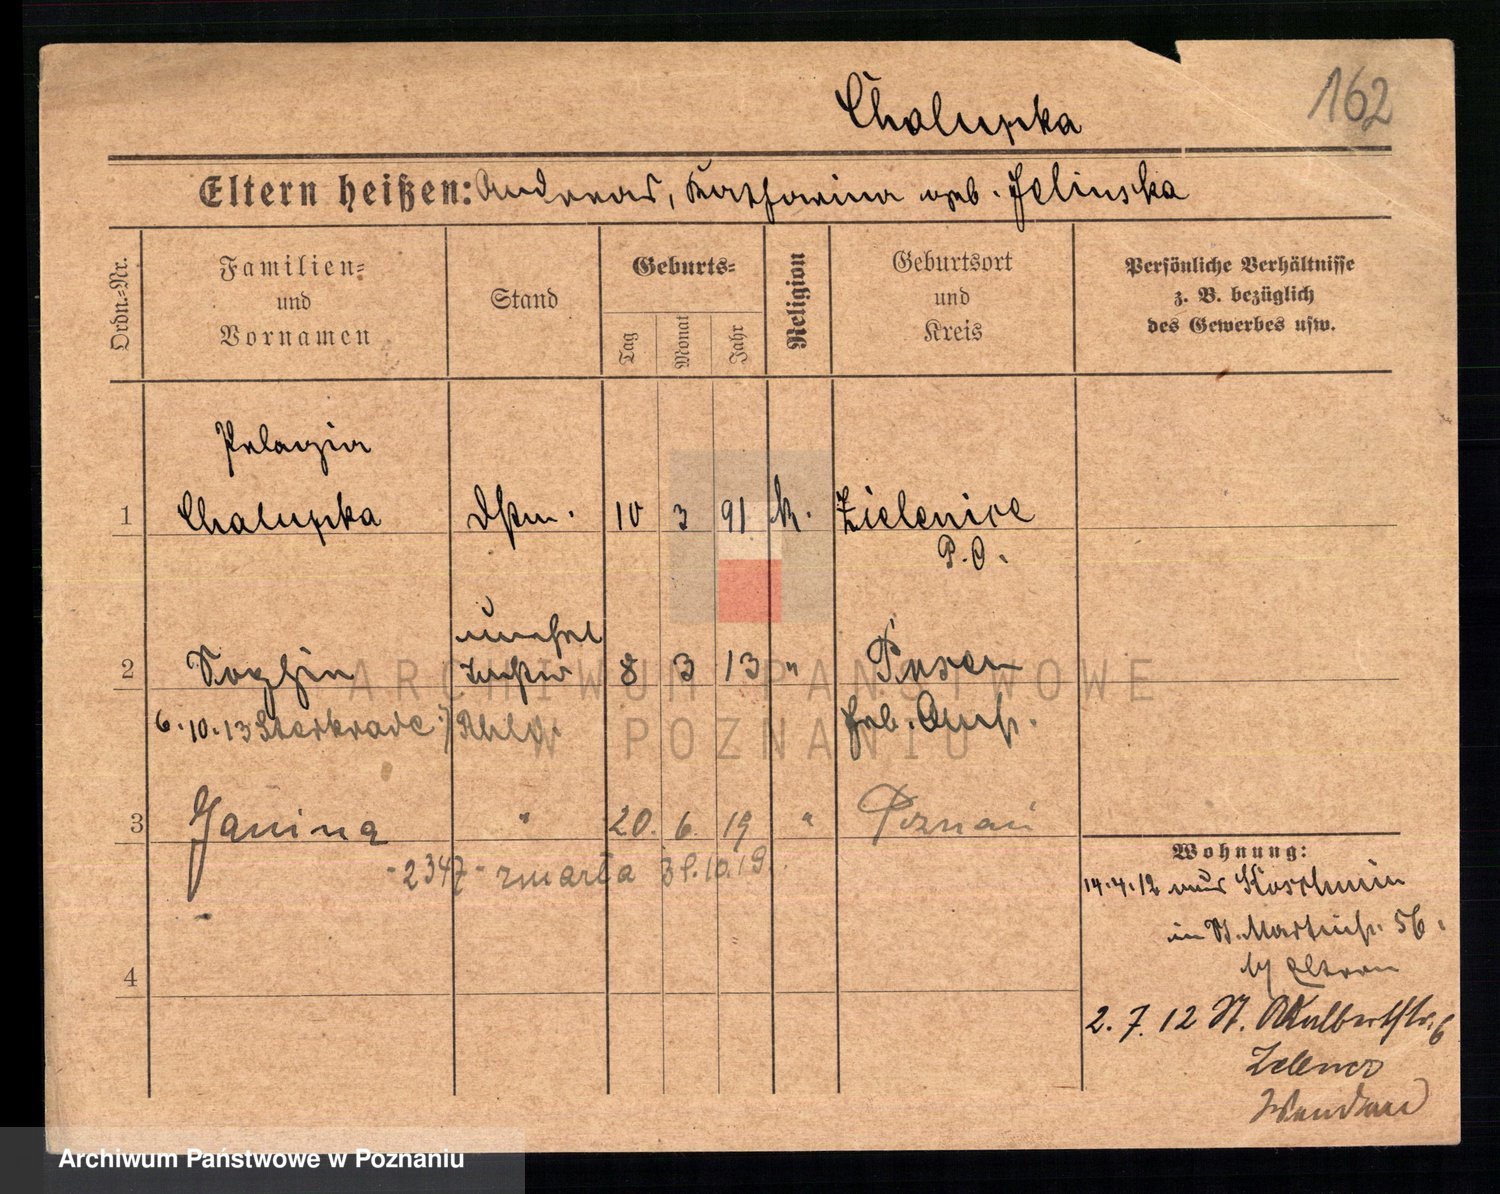 162
Chalupka
Eltern heißen: Andreas, Katharina geb. Jelinska
Ordn.=Nr.
Familien=
und
Vornamen
Stand
Geburts=
Tag
Monat
Jahr
Religion
Geburtsort
und
Kreis
Persönliche Verhältnisse
z. B. bezüglich
des Gewerbes usw.
Pelagia
1 Chalupka 10 3 91 k. Zielenice
P. O.
unehel
2 Sophia 8 3 13 " Posen
6.10.13 Sterkrade Rhld.
3 Janina " 20. 6. 19 " Poznań
- 2347 - zmarła 31.10.19.
4
Wohnung:
14.4.12 aus Koschmin
in St. Martinstr. 56.
b/ Eltern
2. 7. 12 St. Adalbertstr. 6
ARCHIWUM PAŃSTWOWE
W POZNANIU
Archiwum Państwowe w Poznaniu